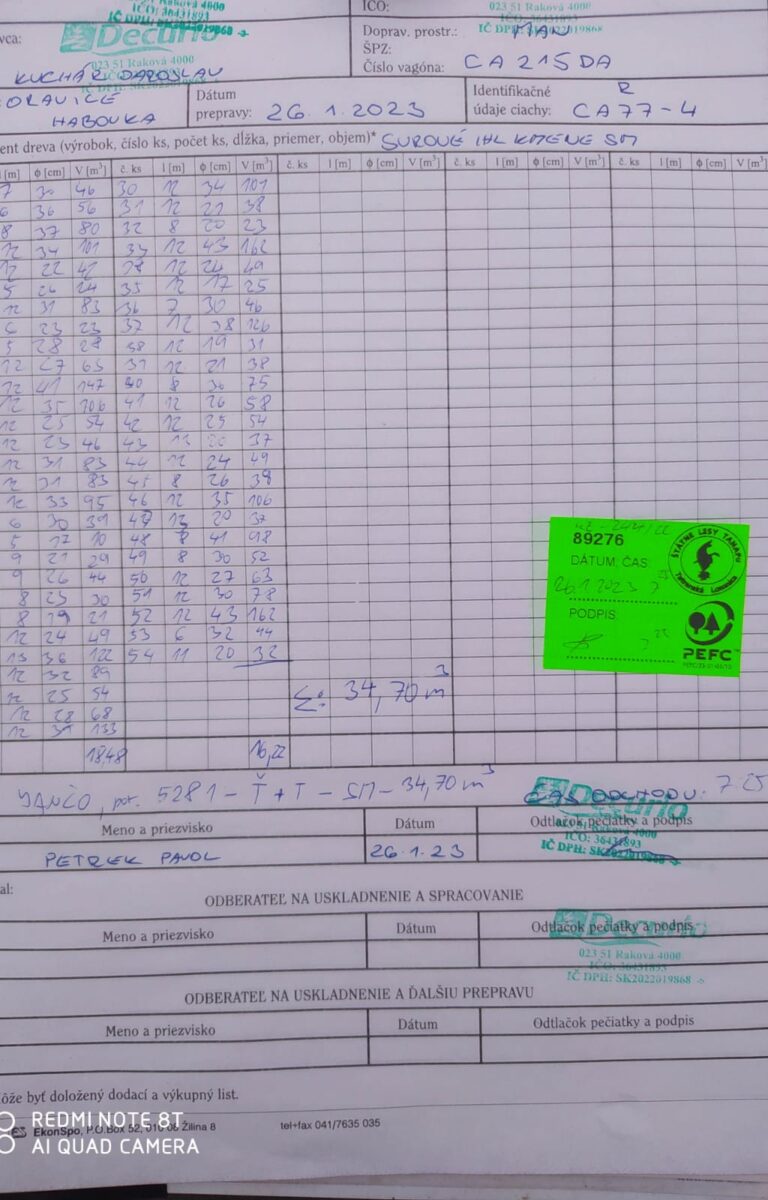 023 51 Raková 4000
IČO: 36431893
IČ DPH: SK2022019868
Decurio
023 51 Raková 4000
KUCHÁR JAROSLAV
IČO:
023 51 Raková 4000
Doprav. prostr.: MAN
IČ DPH: SK2022019868
ŠPZ:
Číslo vagóna: CA 215 DA
ORAVICE
HABOVKA
Dátum
prepravy: 26. 1. 2023
Identifikačné R
údaje ciachy: CA77-4
ent dreva (výrobok, číslo ks, počet ks, dĺžka, priemer, objem)* SUROVÉ IHL KMENE SM
l [m] ϕ [cm] V [m³] č. ks l [m] ϕ [cm] V [m³] č. ks l [m] ϕ [cm] V [m³] č. ks l [m] ϕ [cm] V [m³] č. ks l [m] ϕ [cm] V [m³]
7 30 46 30 12 34 101
6 36 56 31 12 21 38
8 37 80 32 8 20 23
12 34 101 33 12 43 162
12 22 42 12 24 49
5 26 24 35 12 17 25
12 31 83 36 7 30 46
6 23 23 37 12 38 126
5 28 28 38 12 19 31
12 27 63 39 12 21 38
12 41 147 40 8 36 75
12 35 106 41 12 26 58
12 25 54 42 12 25 54
12 23 46 43 12 20 37
12 31 83 44 12 24 49
12 31 83 45 8 26 38
12 33 95 46 12 35 106
6 30 39 47 12 20 37
5 17 10 48 8 41 98
9 21 29 49 8 30 52
9 26 44 50 12 27 63
8 23 30 51 12 30 78
8 19 21 52 12 43 162
12 24 49 53 6 32 44
13 36 122 54 11 20 32
12 32 89
12 25 54
12 28 68
12 39 133
Σ: 34,70 m³
18,48 16,22
89276
DÁTUM, ČAS
26.1.2023
PODPIS
ŠTÁTNE LESY TANAPU
Tatranská Lomnica
PEFC
JANČO, por. 5281 - Ť + T - SM - 34,70 m³
ČAS ODCHODU: 7 25
Decurio
Meno a priezvisko Dátum Odtlačok pečiatky a podpis
023 51 Raková 4000
IČO: 36431893
IČ DPH: SK2022019868
PETREK PAVOL 26.1.23
al:
ODBERATEĽ NA USKLADNENIE A SPRACOVANIE
Decurio
Meno a priezvisko Dátum Odtlačok pečiatky a podpis
023 51 Raková 4000
IČO: 36431893
IČ DPH: SK2022019868
ODBERATEĽ NA USKLADNENIE A ĎALŠIU PREPRAVU
Meno a priezvisko Dátum Odtlačok pečiatky a podpis
ôže byť doložený dodací a výkupný list.
REDMI NOTE 8T
EkonSpo, P.O.Box 52, 010 08 Žilina 8 tel+fax 041/7635 035
AI QUAD CAMERA